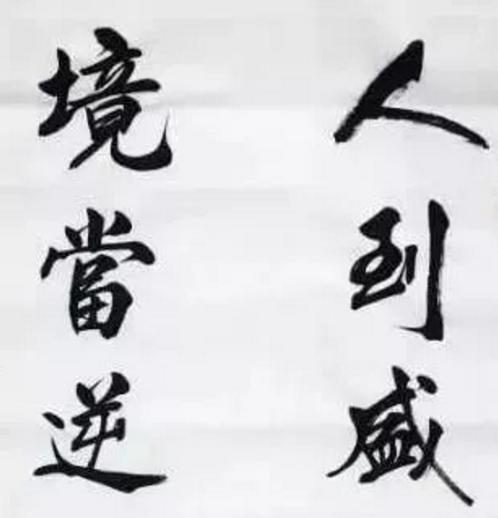 人到盛
境當逆